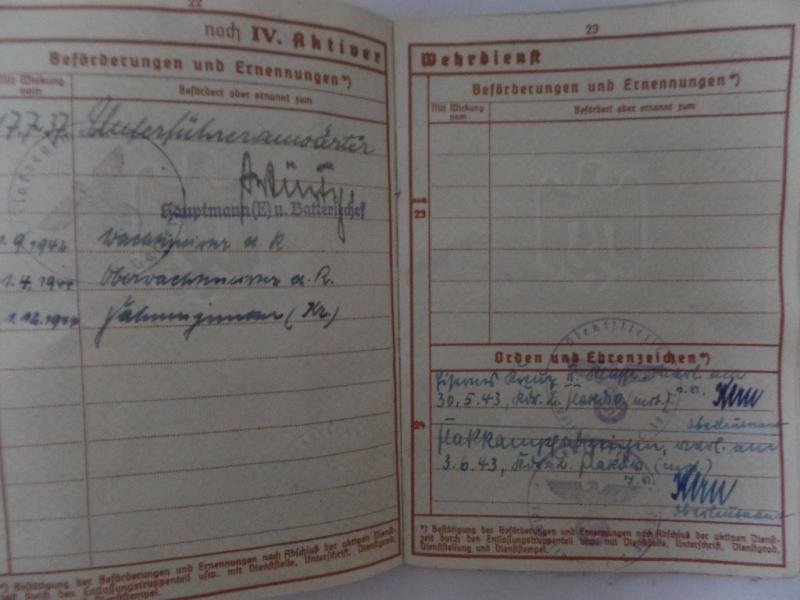 22
noch IV. Aktiver
Beförderungen und Ernennungen*)
Mit Wirkung vom
Befördert oder ernannt zum
17.7.37. Unterführeranwärter
Hauptmann (E) u. Batteriechef
1.9.1942 Wachtmeister d. R.
1.4.1944 Oberwachtmeister d. R.
1.12.1944 Fahnenjunker (Kr.)
*) Bestätigung der Beförderungen und Ernennungen nach Abschluß der aktiven Dienst-
zeit durch den Entlassungstruppenteil usw. mit Dienststelle, Unterschrift, Dienstgrad,
Dienststempel.
23
Wehrdienst
Beförderungen und Ernennungen*)
Mit Wirkung vom
Befördert oder ernannt zum
noch
23
Orden und Ehrenzeichen*)
Eisernes Kreuz II. Klasse, verl. am
30.5.43, Kdr. 2. Flakdiv. (mot.)
Kern
Oberleutnant
24
Flakkampfabzeichen, verl. am
3.6.43, Kdr. 2. Flakdiv. (mot.)
Kern
Oberleutnant
*) Bestätigung der Beförderungen und Ernennungen nach Abschluß der aktiven Dienst-
zeit durch den Entlassungstruppenteil usw. mit Dienststelle, Unterschrift, Dienstgrad,
Dienststellung und Dienststempel.